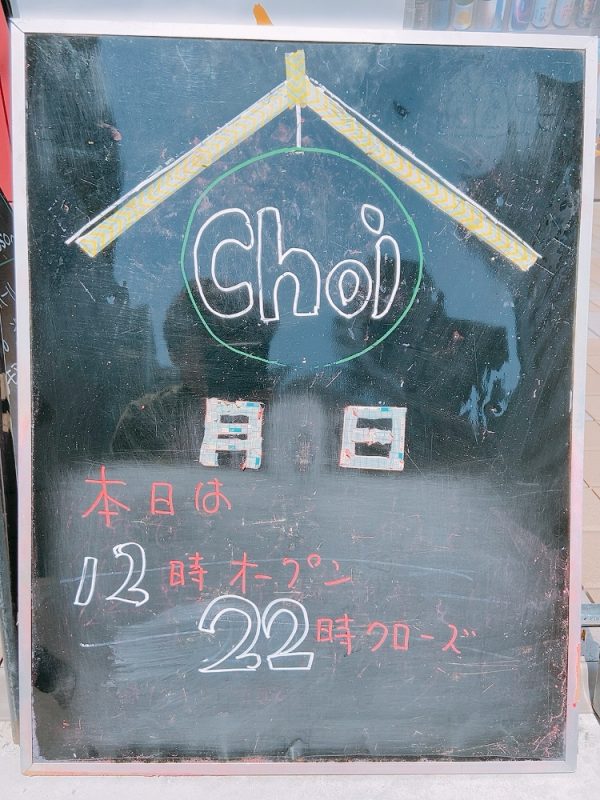 Choi
月 日
本日は
12時オープン
22時クローズ